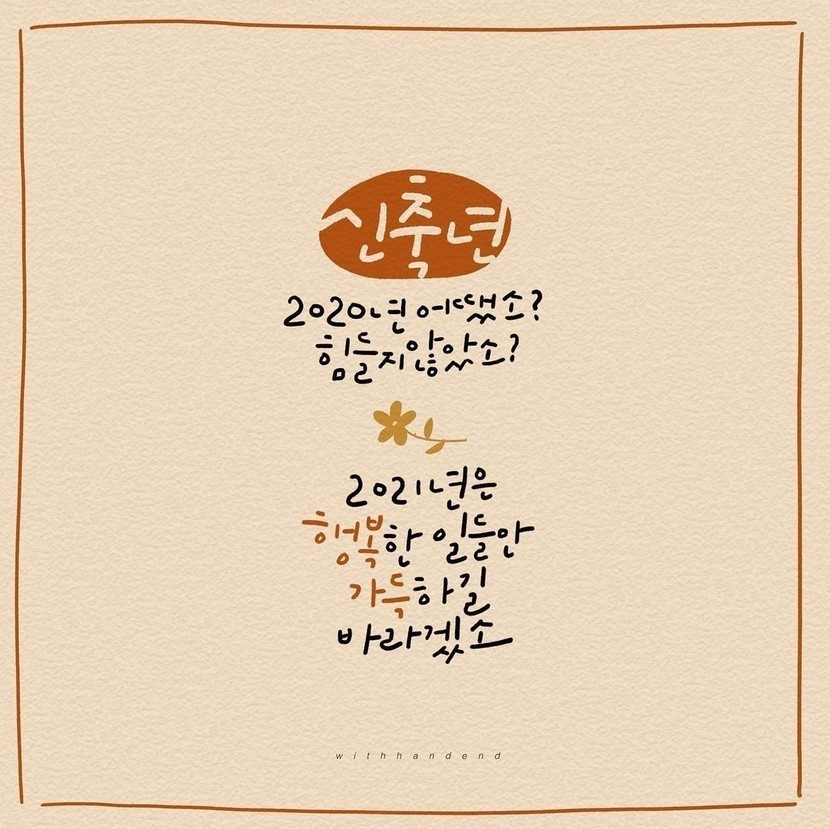 신축년
2020년 어땠소?
힘들지않았소?
2021년은
행복한 일들만
가득하길
바라겠소
withhandend